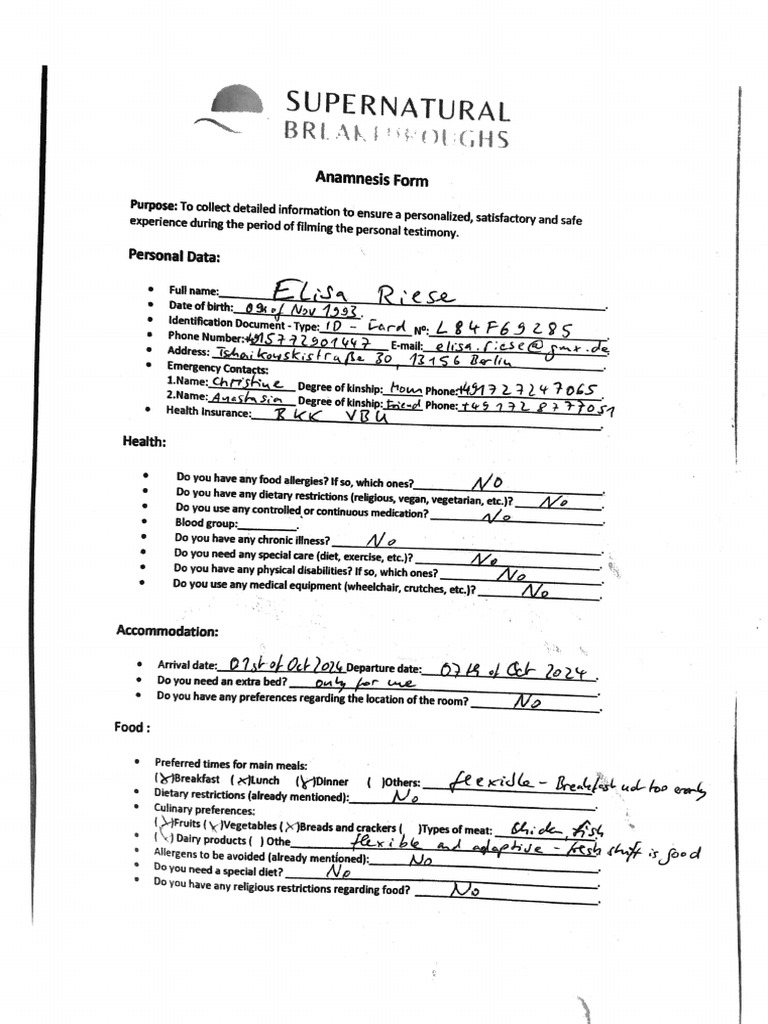 SUPERNATURAL
BREAKTHROUGHS
Anamnesis Form
Purpose: To collect detailed information to ensure a personalized, satisfactory and safe
experience during the period of filming the personal testimony.
Personal Data:
• Full name: Elisa Riese
• Date of birth: 09th of Nov 1993.
• Identification Document - Type: ID - Card Nº: L84F69285
• Phone Number: +4915772901447 E-mail: elisa.riese@gmx.de
• Address: Tshaikowskistraße 30, 13156 Berlin
• Emergency Contacts:
1.Name: Christine Degree of kinship: Mom Phone: +491727247065
2.Name: Anastasia Degree of kinship: Friend Phone: +491728777051
• Health Insurance: BKK VBU
Health:
• Do you have any food allergies? If so, which ones? NO
• Do you have any dietary restrictions (religious, vegan, vegetarian, etc.)? No
• Do you use any controlled or continuous medication? No
• Blood group:
• Do you have any chronic illness? No
• Do you need any special care (diet, exercise, etc.)? No
• Do you have any physical disabilities? If so, which ones? No
• Do you use any medical equipment (wheelchair, crutches, etc.)? No
Accommodation:
• Arrival date: 01st of Oct 2024 Departure date: 07th of Oct 2024
• Do you need an extra bed? only for me
• Do you have any preferences regarding the location of the room? No
Food :
• Preferred times for main meals:
(x)Breakfast (x)Lunch (x)Dinner ( )Others: flexible - Breakfast not too early
• Dietary restrictions (already mentioned): No
• Culinary preferences:
(x)Fruits (x)Vegetables (x)Breads and crackers ( )Types of meat: Chicken, fish
• (x) Dairy products ( ) Othe flexible and adaptive - fresh stuff is good
• Allergens to be avoided (already mentioned): No
• Do you need a special diet? No
• Do you have any religious restrictions regarding food? No